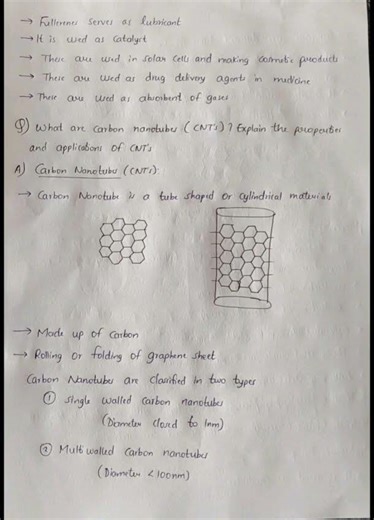 → Fullerenes serves as lubricant
→ It is used as catalyst
→ These are used in solar cells and making cosmetic products
→ These are used as drug delivery agents in medicine
→ These are used as absorbent of gases
Q) What are carbon nanotubes (CNT's)? Explain the properties
and applications of CNT's
A) Carbon Nanotubes (CNT's):
→ Carbon Nanotube is a tube shaped or cylindrical materials
→ Made up of carbon
→ Rolling or folding of graphene sheet
Carbon Nanotubes are classified in two types
① Single walled carbon nanotubes
(Diameter closed to 1nm)
② Multi walled carbon nanotubes
(Diameter < 100nm)